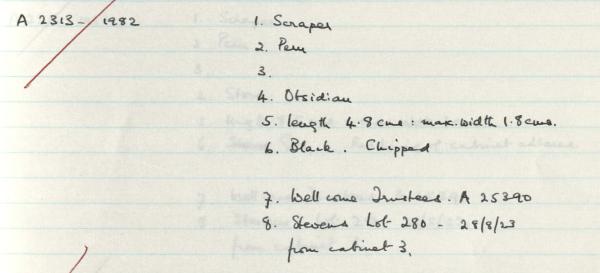 A 2313 - 1982 1. Scraper
2. Peru
3.
4. Obsidian
5. length 4.8 cms : max. width 1.8 cms.
6. Black. Chipped
7. Wellcome Trustees. A 25390
8. Stevens Lot 280 - 28/8/23
from cabinet 3.